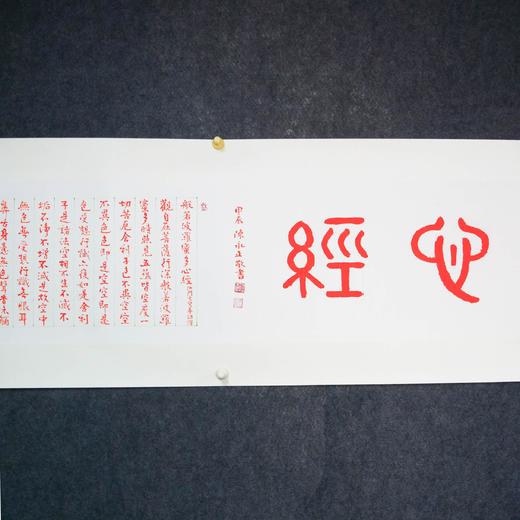 心經
甲辰 陳永正敬書
般若波羅蜜多心經
觀自在菩薩行深般若波羅
蜜多時照見五蘊皆空度一
切苦厄舍利子色不異空空
不異色色即是空空即是
色受想行識亦復如是舍利
子是諸法空相不生不滅不
垢不淨不增不減是故空中
無色無受想行識無眼耳
鼻舌身意無色聲香味觸